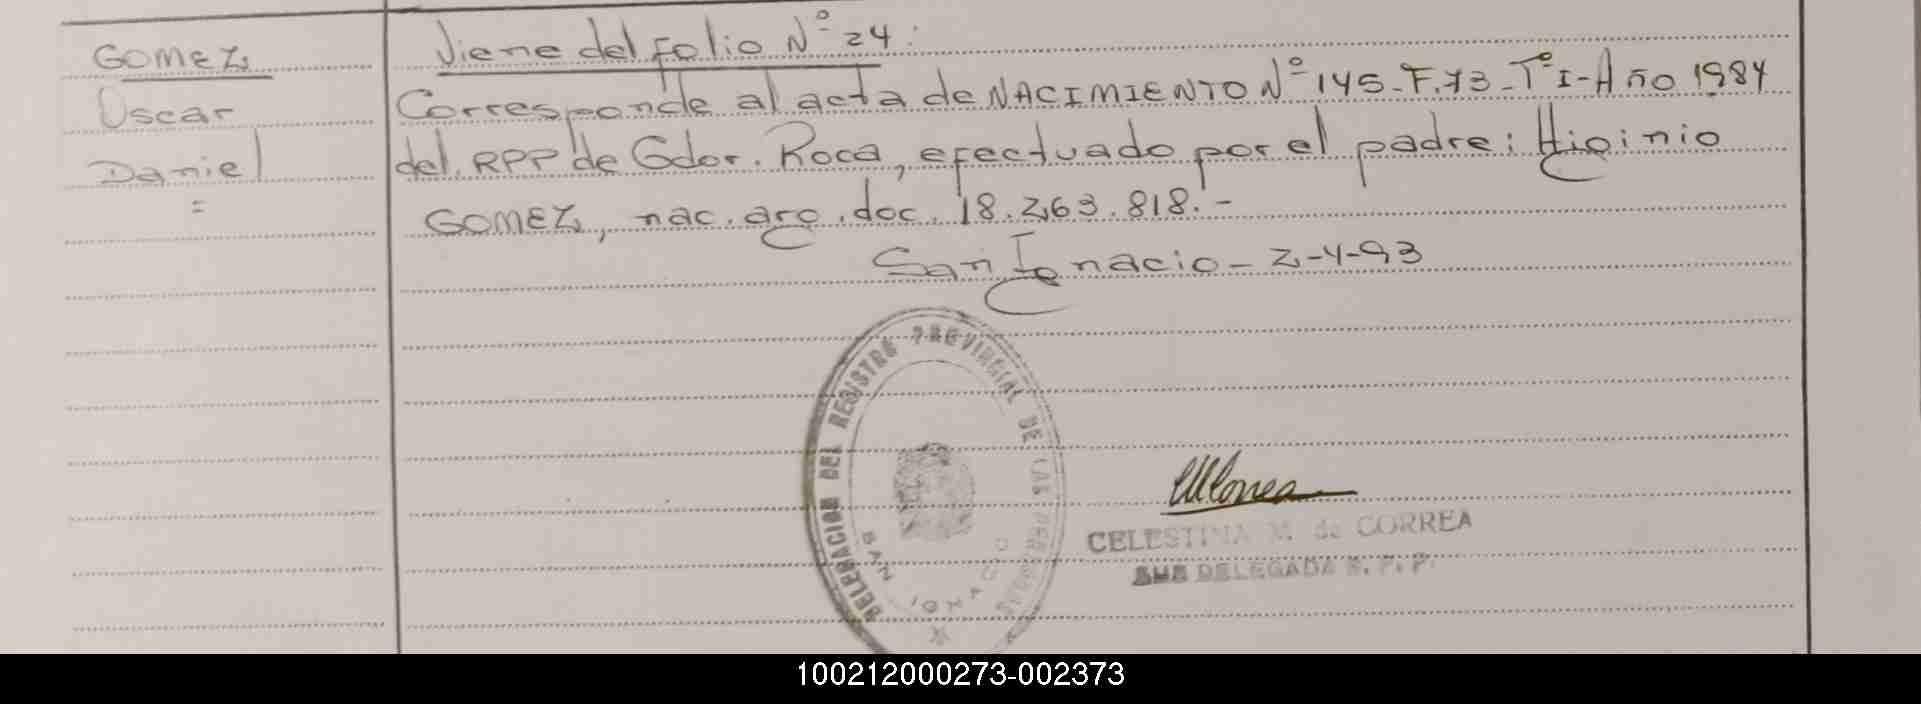 GOMEZ
Oscar
Daniel
=
Viene del folio N° 24:
Corresponde al acta de NACIMIENTO N° 145-F.73-T° I-Año 1984
del RPP de Gdor. Roca, efectuado por el padre: Higinio
GOMEZ, nac. arg. doc. 18.263.818.-
San Ignacio - 2-4-93
DELEGACION DEL REGISTRO PROVINCIAL DE LAS PERSONAS
SAN IGNACIO
CELESTINA M. de CORREA
SUB DELEGADA R. P. P.
100212000273-002373